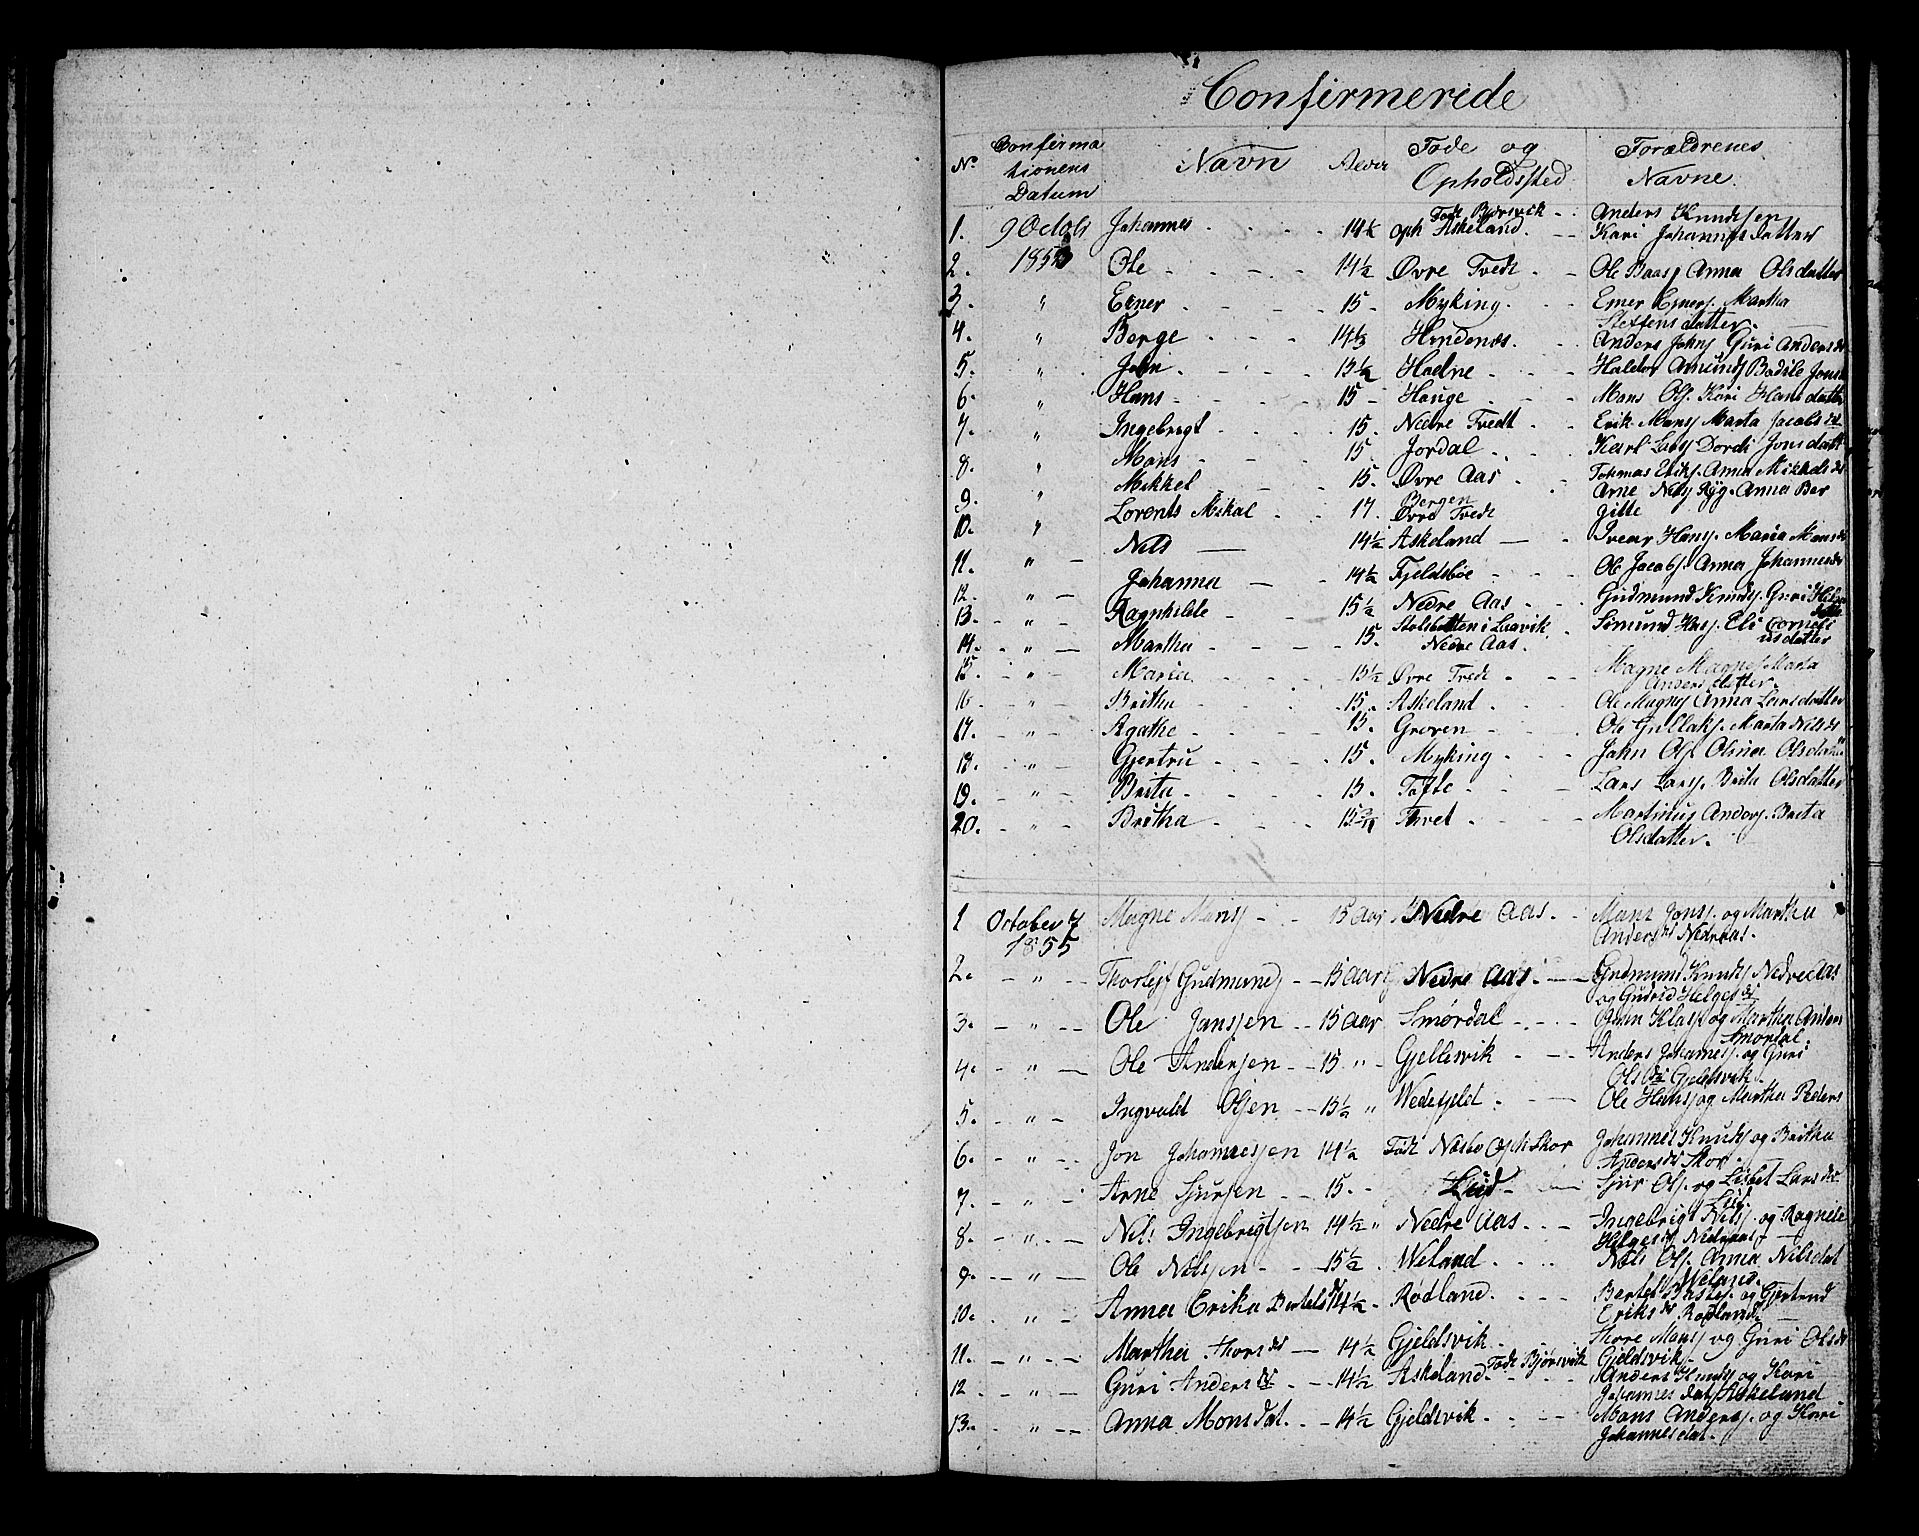 Confirmerede
No. Confirmationens Datum Navn Alder Føde og Opholdssted Forældrenes Navne
1. 9 Octob Johannes 14½ Født Bjørsvik oph Askeland Anders Knudsen Kari Johannesdatter
2. 1853 Ole 14½ Øvre Tvedt Ole Baas Anna Olsdatter
3. " Einer 15 Myking Emer Einers. Martha Steffensdatter
4. " Berge 14⅓ Hindenæs Anders Johns Guri Andersdt
5. " John 15½ Hodne Haldor Amunds Bodile Jons
6. " Hans 15 Hauge Mons Ols. Kari Hansdatter
7. " Ingebrigt 15. Nedre Tvedt Erik Mons Marta Jacobsdt
8. " Mons 15. Jordal Karl Lars Dordi Jonsdatt
9. " Mikkel 15. Øvre Aas Tohmas Eriks. Anna Mikkelsdt
10. " Lorents Mikal 17. Bergen Øvre Tvedt Arne Nels Ryg. Anna Bergitte
11. " Nils 14½ Askeland Ivear Hans. Maria Monsdt
12. " Johanna 14½ Fjeldsbøe Ole Jacobs. Anna Johannesdt
13. " Ragnhilde 15½ Nedre Aas Gudmund Knuds. Guri Helgedatte
14. " Martha 15. Stolsbotten i Lurvik Nedre Aas. Simund Hans. Eli Corneliusdatter
15 " Maria 15½ Øvre Tvedt Magne Magnes Marta Andersdatter.
16 " Britha 15. Askeland Ole Magns Anna Larsdatter
17. " Agathe 15. Groven Ole Gullaks. Marta Nilsdt
18. " Gjertru 15. Myking John Ols. Olina Olsdatt
19. " Brita 15. Tofte Lars Lars. Brita Olsdatter
20. " Britha 15¾ Tvet Martinus Anders. Brita Olsdatter.
1 October 7 1855 Magne Mons 15 Aar Nedre Aas. Mons Jons. og Martha Andersdt Nedreaas.
2. " Thorleif Gudmunds 15 Aar Nedre Aas Gudmund Knuds Nedre Aas og Gudrid Helgesdt
3. " Ole Janssen 15 Aar Smørdal Klas og Martha Anders Smørdal.
4. " Ole Andersen 15 " Gjellesvik Anders Johannes. og Guri Olsdt Gjeldsvik.
5. " Ingvald Olsen 15½ " Wedefjeld Ole Hans og Martha Peders
6. " Jon Johannessen 14½ Født Næsbø Oph Skor Johannes Knuds og Britha Andersdt Skor
7. " Arne Sjursen 15. Lid Sjur Ols. og Lisbet Larsdt Lid
8. " Nils Ingebrigtsen 14½ " Nedre Aas Ingebrigt Nils. og Ragnele Helgesdt Nedreaas
9. " Ole Nilssen 15½ Weland Nils Ols. Anna Nilsdat Weland.
10. " Anna Erika Bertelsdt 14½ Rødland. Bertel og Gjertrud Eriksdt Rødland
11. " Martha Thorsdt 14½ Gjeldsvik Thore Mons og Guri Olsdt Gjeldsvik
12 " Guri Andersdt 14½ Askeland Født Bjørsvik Anders Knuds og Kari Johannesdat Askeland
13. " Anna Monsdat. 14½ Gjeldsvik Mons Anders. og Kari Johannesdat.